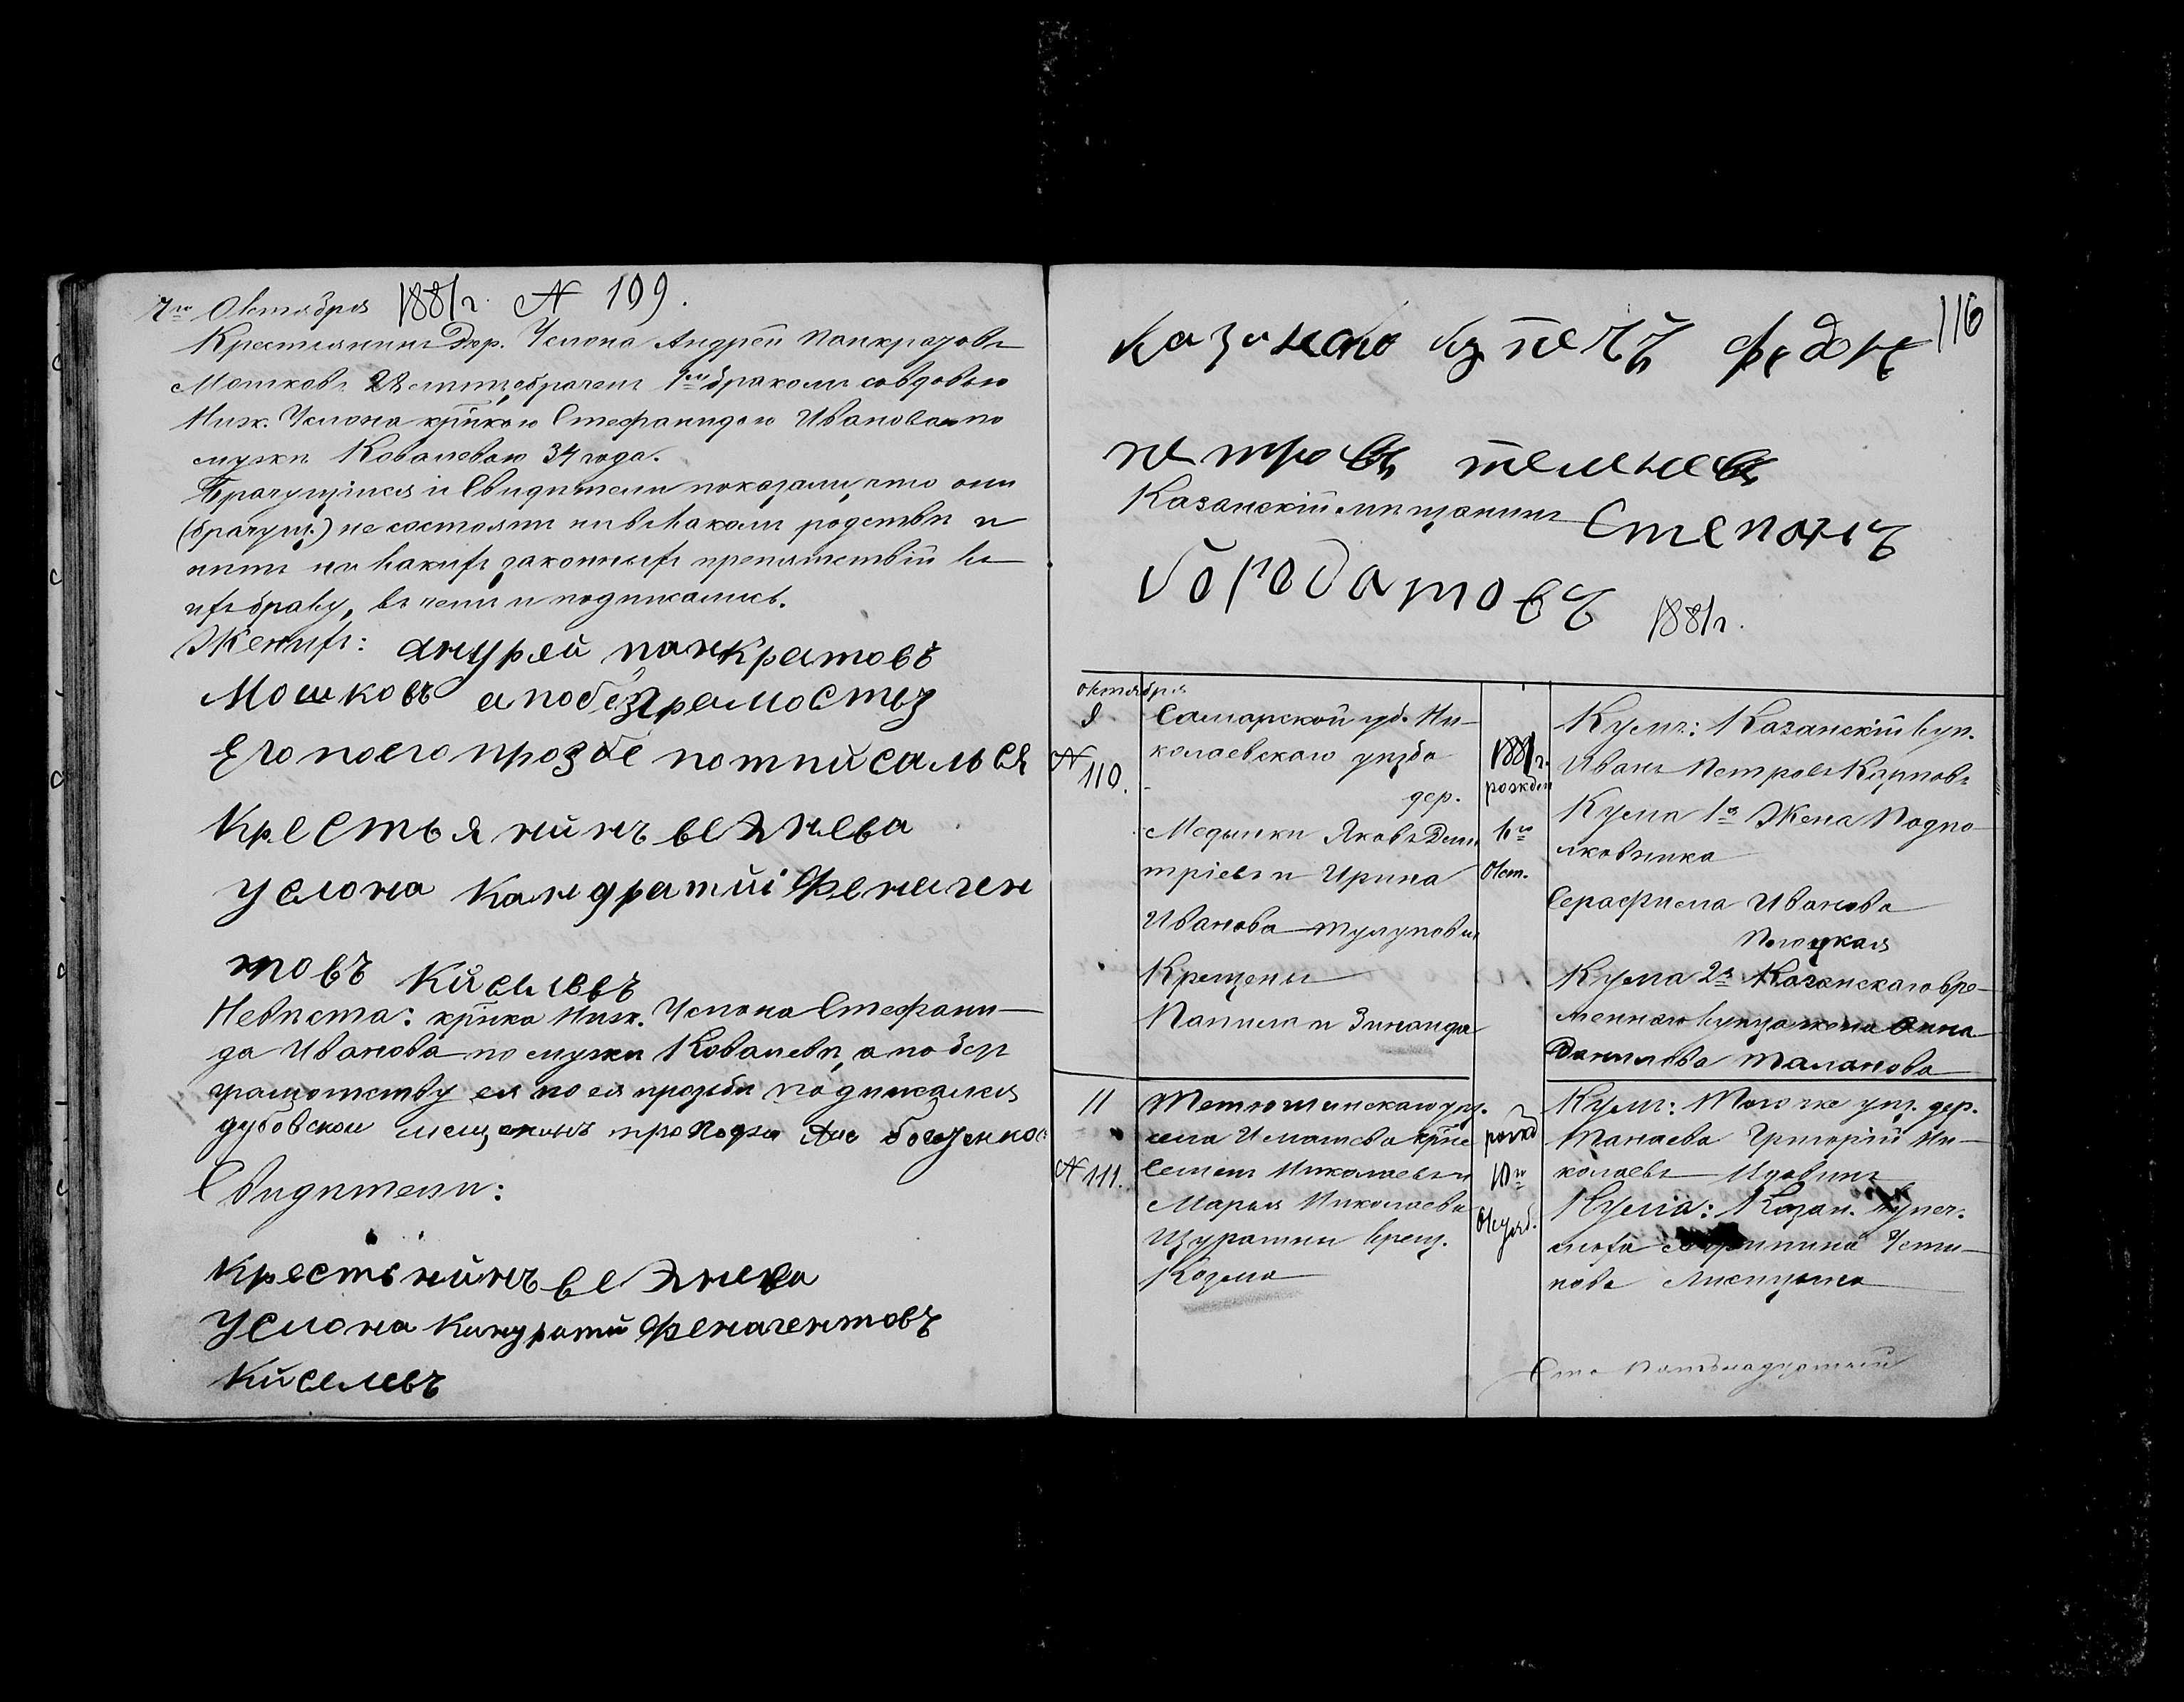 7го Октября 1881г. № 109.
Крестьянинъ Дер. Услона Андрей Панкратовъ
Мошковъ 28 лѣтъ, обрачен 1мъ бракомъ со вдовою
Ниж. Услона кр̅нкою Стефанидою Ивановою по
мужѣ Ковалевою 34 года.
Брачущіися и Свидѣтели показали, что они
(брачущ.) не состоятъ ни въ какомъ родствѣ и
нѣтъ ни какихъ законныхъ препятствій къ
ихъ браку, въ чемъ и подписались.
Женихъ: андрей панкратовъ
Мошковъ а побезграмостьз
Его поего прозбе потписалься
Крестьянинъ вежнева
Услона Кандратий Феначен
товъ Киселевъ
Невѣста: кр̅нка Ниж. Услона Стефани-
да Иванова по мужѣ Ковалева, а по без
грамотству ея по ея прозьбѣ подписался
дубовской мещанинъ
Свидѣтели:
Крестьнинъ вежнева
Услона Кандратий Феначентовъ
Киселевъ
116
Казанско купечъ Федоръ
петровъ
Казанскій мѣщанинъ Степанъ
бородатовъ 1881г.
октября
9
№ 110.
Самарской губ. Ни-
колаевскаго уѣзда
дер.
Медынки Яковъ Дим
тріевъ и Ирина
Иванова Тулуповы
Крещены
Папила и Зинаида
1881г.
рожден
6го
Окт.
Кумъ: Казанскій куп.
Иванъ Петровъ Карповъ
Кума 1я Жена Подпо-
лковника
Серафима Иванова
Полоцкая
Кума 2я Казанскаго вре-
меннаго купца жена Анна
Данилова Таланова
11
№ 111.
Тетюшинскаго уѣз.
села кр̅не
Семенъ Николаевъ и
Марья Николаева
Щуратки крещ.
Козьма
рожд
10го
Октяб.
Кумъ: Того же уѣз. дер.
Танаева Григорій Ни-
колаевъ
Кума: Казан. купеч.
Усти-
нова
Сто Шестнадцатый